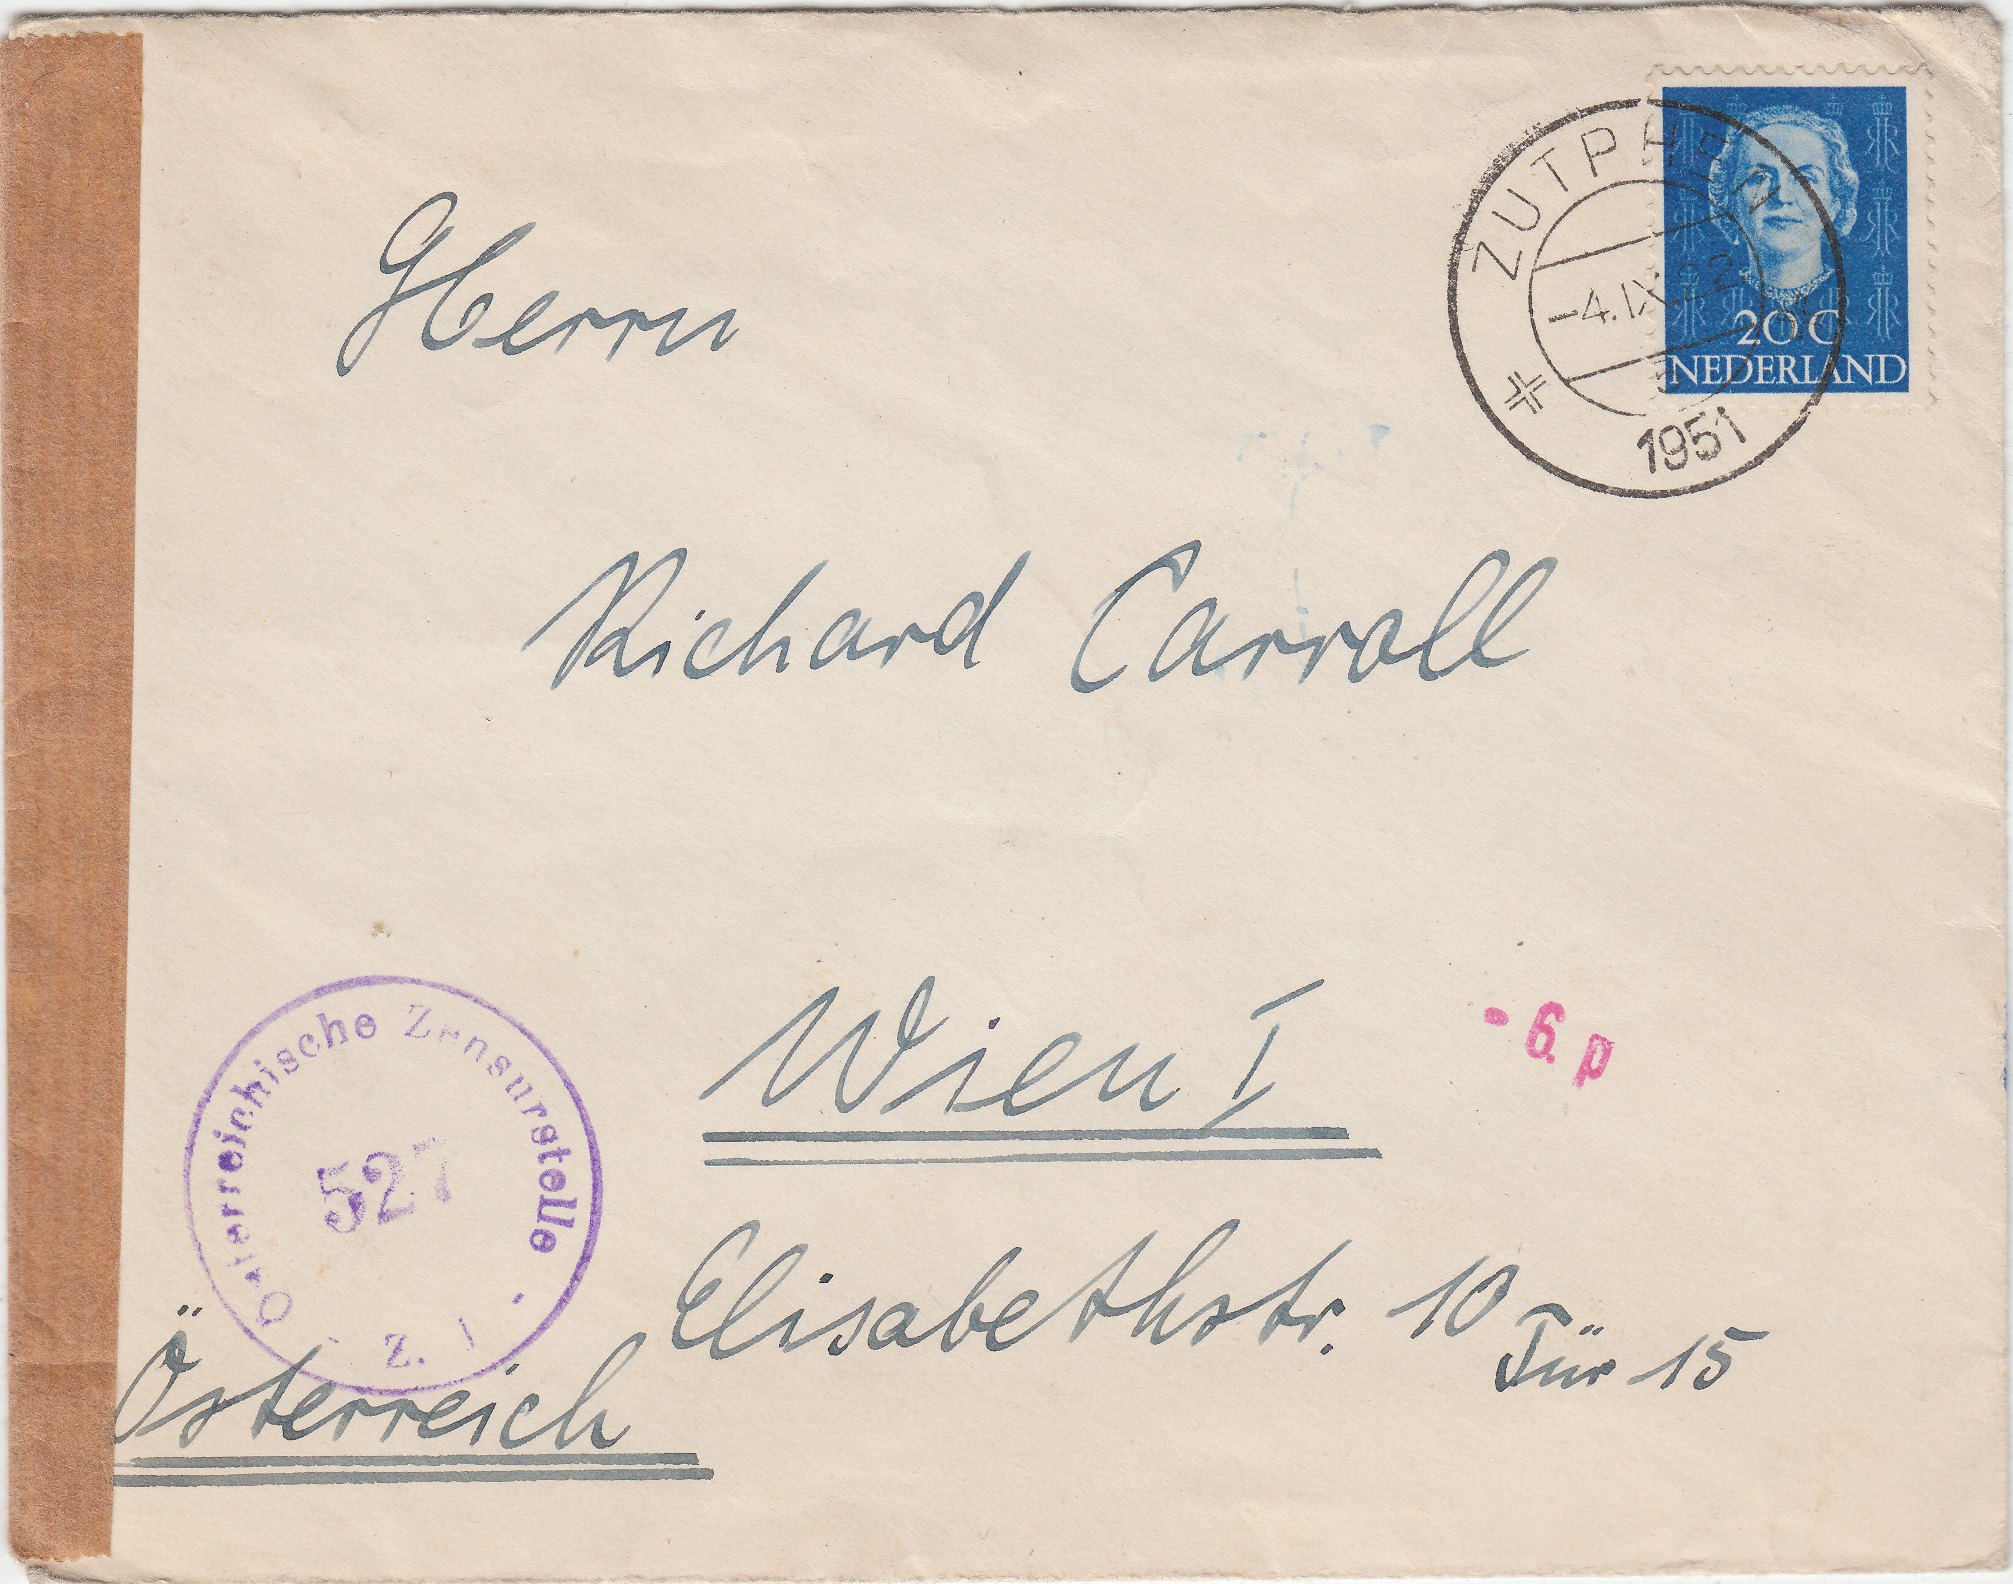 ZUTPHEN
-4.IX.22
1951
20 C
NEDERLAND
Herrn
Richard Carroll
Wien I
- 6. p
Elisabethstr. 10
Tür 15
Österreichische Zensurstelle
527
Z. 1
Österreich